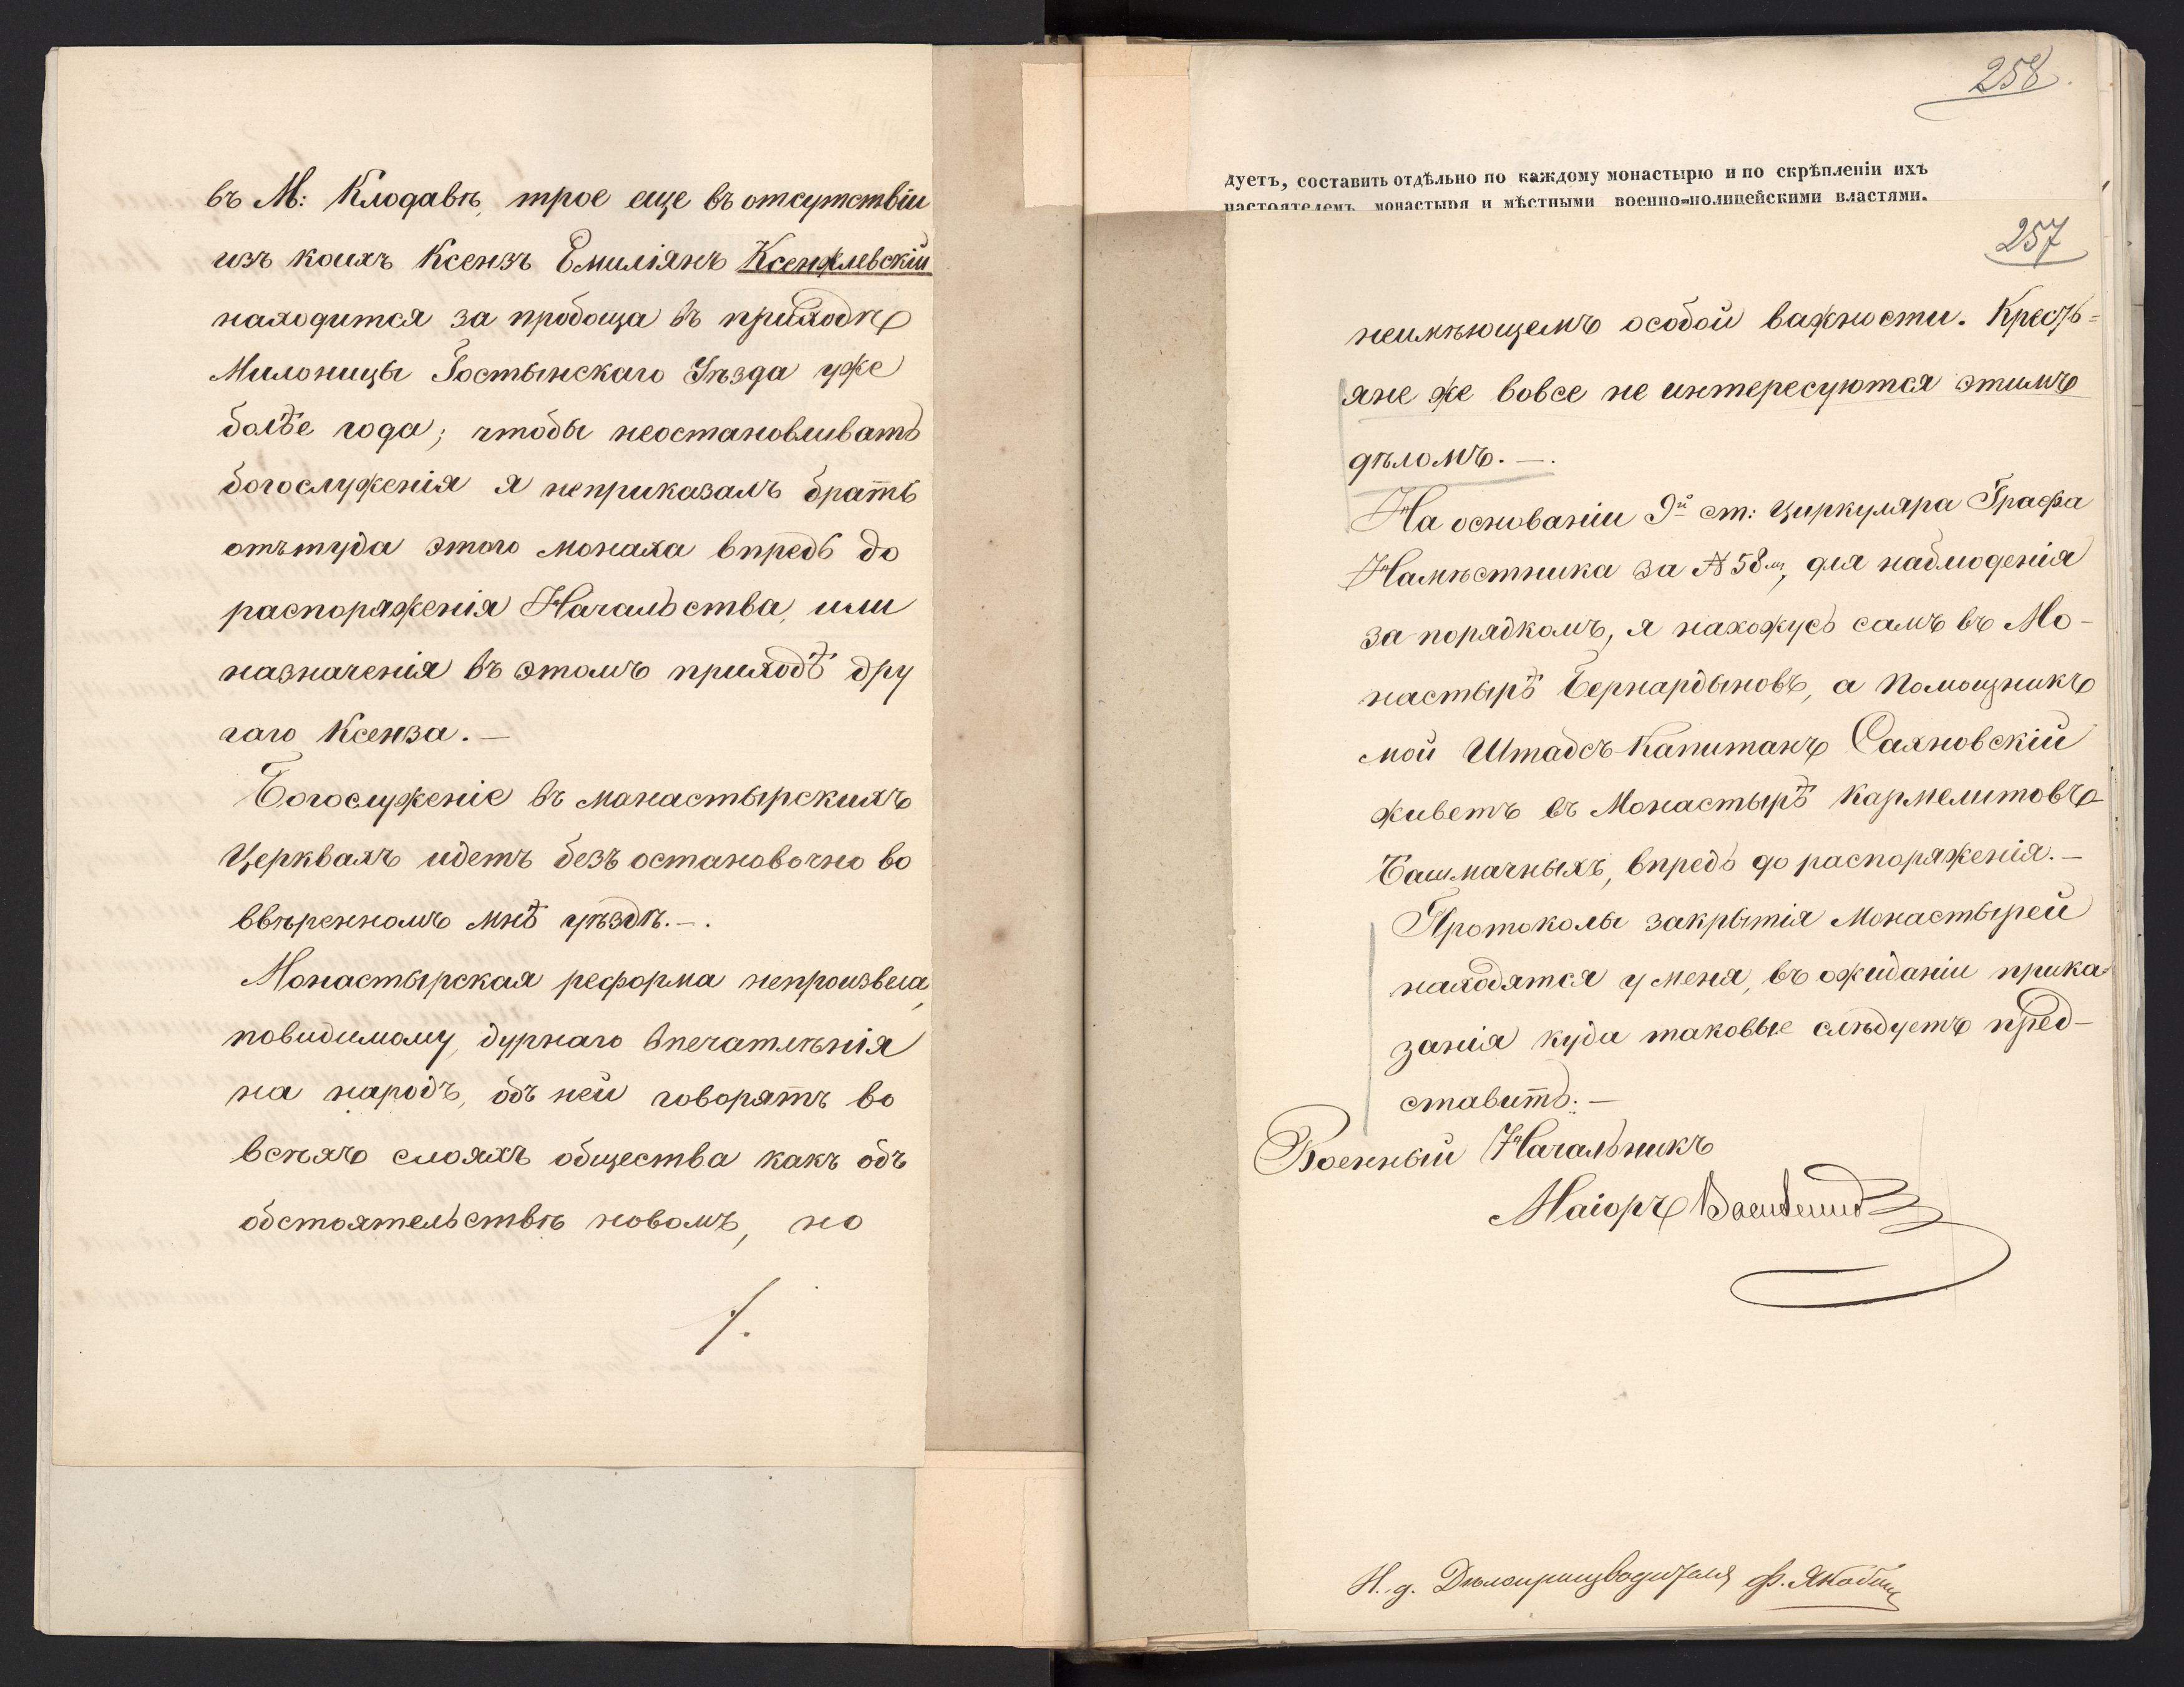 въ М: Клодавѣ, трое еще въ отсутствіи
изъ коихъ Ксензъ Емиліянъ Ксенжлевскій
находится за пробоща въ приходѣ
Милоницы Гостынскаго Уѣзда уже
болѣе года; чтобы неостановливать
богослуженія я неприказалъ брать
отътуда этого монаха впредь до
распоряженія Начальства, или
назначенія въ этомъ приходѣ дру
гаго Ксенза. —
Богослуженіе въ манастырскихъ
Церквахъ идетъ безъ остановочно во
ввѣренномъ мнѣ уѣздѣ. —.
Монастырская реформа непроизвела,
повидимому, дурнаго впечатлѣнія
на народъ, объ ней говорятъ во
всѣхъ слояхъ общества какъ объ
обстоятельствѣ новомъ, но
/.
258.
дуетъ, составить отдѣльно по каждому монастырю и по скрѣпленіи ихъ
настоятелемъ монастыря и мѣстными военно-полицейскими властями.
257
неимѣющемъ особой важности. Кресть=
яне же вовсе не интересуются этимъ
дѣломъ. —.
На основаніи 9й ст: циркуляра Графа
Намѣстника за № 58м, для наблюденія
за порядкомъ, я нахожусь самъ въ Мо-
настырѣ Бернардыновъ, а Помощникъ
мой Штабсъ-Капитанъ Саяновскій
живетъ въ Монастырѣ Кармелитовъ
Башмачныхъ, впредь до распоряженія. —
Протоколы закрытія Монастырей
находятся у меня, въ ожиданіи прика-
занія куда таковые слѣдуетъ пред-
ставить: —
Военный Начальникъ
Маіоръ
И. д. Дѣлопроизводителя Ф.